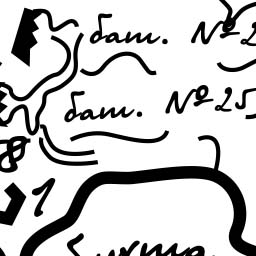 бат. № 2
бат. № 25
8
1